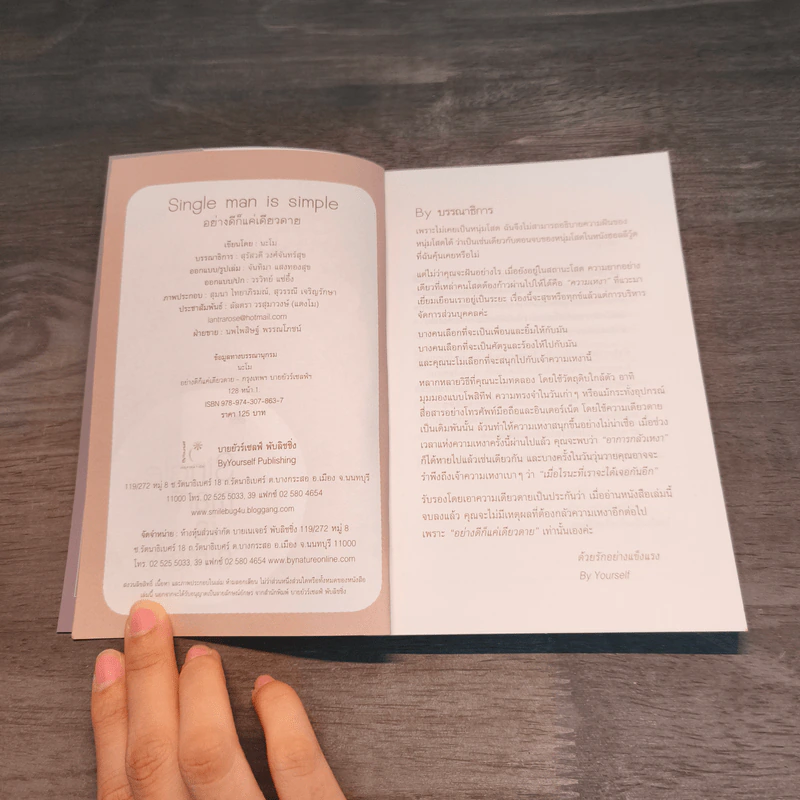 Single man is simple
อย่างดีก็แค่เดียวดาย
เขียนโดย : นะโม
บรรณาธิการ : สุรัสวดี วงศ์จันทร์สุข
ออกแบบ/รูปเล่ม : จันทิมา แสงทองสุข
ออกแบบปก : วรวิทย์ แซ่อึ้ง
ภาพประกอบ : สุมนา ไทยาภิรมณ์, สุวรรณี เจริญรักษา
ประชาสัมพันธ์ : ลัสตรา วรสุมาวงษ์ (แตงโม)
iantrarose@hotmail.com
ฝ่ายขาย : นพไพสิษฐ์ พรรณโภชน์
ข้อมูลทางบรรณานุกรม
นะโม
อย่างดีก็แค่เดียวดาย – กรุงเทพฯ บายยัวร์เซลฟ์ฯ
128 หน้า.1.
ISBN 978-974-307-863-7
ราคา 125 บาท
บายยัวร์เซลฟ์ พับลิชชิ่ง
ByYourself Publishing
119/272 หมู่ 8 ซ.รัตนาธิเบศร์ 18 ถ.รัตนาธิเบศร์ ต.บางกระสอ อ.เมือง จ.นนทบุรี
11000 โทร. 02 525 5033, 39 แฟกซ์ 02 580 4654
www.smilebug4u.bloggang.com
จัดจำหน่าย : ห้างหุ้นส่วนจำกัด บายเนเจอร์ พับลิชชิ่ง 119/272 หมู่ 8
ซ.รัตนาธิเบศร์ 18 ถ.รัตนาธิเบศร์ ต.บางกระสอ อ.เมือง จ.นนทบุรี 11000
โทร 02 525 5033, 39 แฟกซ์ 02 580 4654 www.bynatureonline.com
สงวนลิขสิทธิ์ เนื้อหา และภาพประกอบในเล่ม ห้ามลอกเลียน ไม่ว่าส่วนหนึ่งส่วนใดหรือทั้งหมดของหนังสือ
เล่มนี้ นอกจากจะได้รับอนุญาตเป็นลายลักษณ์อักษร จากสำนักพิมพ์ บายยัวร์เซลฟ์ พับลิชชิ่ง
By บรรณาธิการ
เพราะไม่เคยเป็นหนุ่มโสด ฉันจึงไม่สามารถอธิบายความฝันของ
หนุ่มโสดได้ ว่าเป็นเช่นเดียวกับตอนจบของหนุ่มโสดในหนังฮอลลีวู้ด
ที่ฉันคุ้นเคยหรือไม่
แต่ไม่ว่าคุณจะฝันอย่างไร เมื่อยังอยู่ในสถานะโสด ความยากอย่าง
เดียวที่เหล่าคนโสดต้องก้าวผ่านไปให้ได้คือ "ความเหงา" ที่แวะมา
เยี่ยมเยือนเราอยู่เป็นระยะ เรื่องนี้จะสุขหรือทุกข์แล้วแต่การบริหาร
จัดการส่วนบุคคลค่ะ
บางคนเลือกที่จะเป็นเพื่อนและยิ้มให้กับมัน
บางคนเลือกที่จะเป็นศัตรูและร้องไห้ไปกับมัน
และคุณนะโมเลือกที่จะสนุกไปกับเจ้าความเหงานี้
หลากหลายวิธีที่คุณนะโมทดลอง โดยใช้วัตถุดิบใกล้ตัว อาทิ
มุมมองแบบโพสิทีฟ ความทรงจำในวันเก่า ๆ หรือแม้กระทั่งอุปกรณ์
สื่อสารอย่างโทรศัพท์มือถือและอินเตอร์เน็ต โดยใช้ความเดียวดาย
เป็นเดิมพันนั้น ล้วนทำให้ความเหงาสนุกขึ้นอย่างไม่น่าเชื่อ เมื่อช่วง
เวลาแห่งความเหงาครั้งนี้ผ่านไปแล้ว คุณจะพบว่า "อาการกลัวเหงา"
ก็ได้หายไปแล้วเช่นเดียวกัน และบางครั้งในวันวุ่นวายคุณอาจจะ
รำพึงถึงเจ้าความเหงาเบา ๆ ว่า "เมื่อไรนะที่เราจะได้เจอกันอีก"
รับรองโดยเอาความเดียวดายเป็นประกันว่า เมื่ออ่านหนังสือเล่มนี้
จบลงแล้ว คุณจะไม่มีเหตุผลที่ต้องกลัวความเหงาอีกต่อไป
เพราะ "อย่างดีก็แค่เดียวดาย" เท่านั้นเองค่ะ
ด้วยรักอย่างแข็งแรง
By Yourself